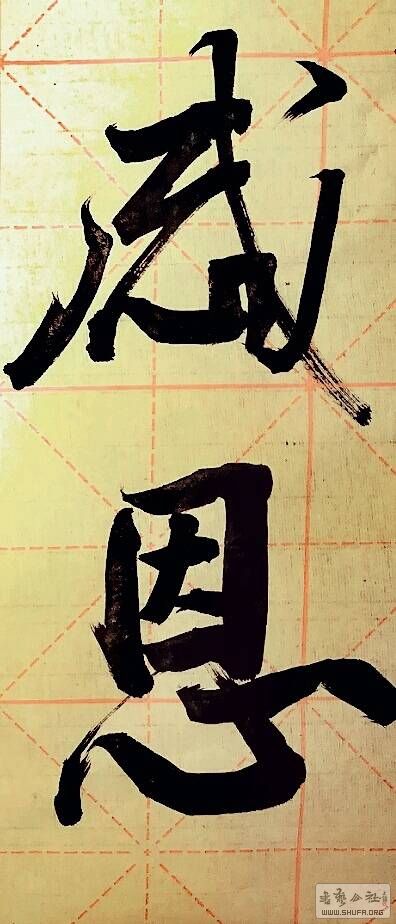 感恩
书艺公社
WWW.SHUFA.ORG